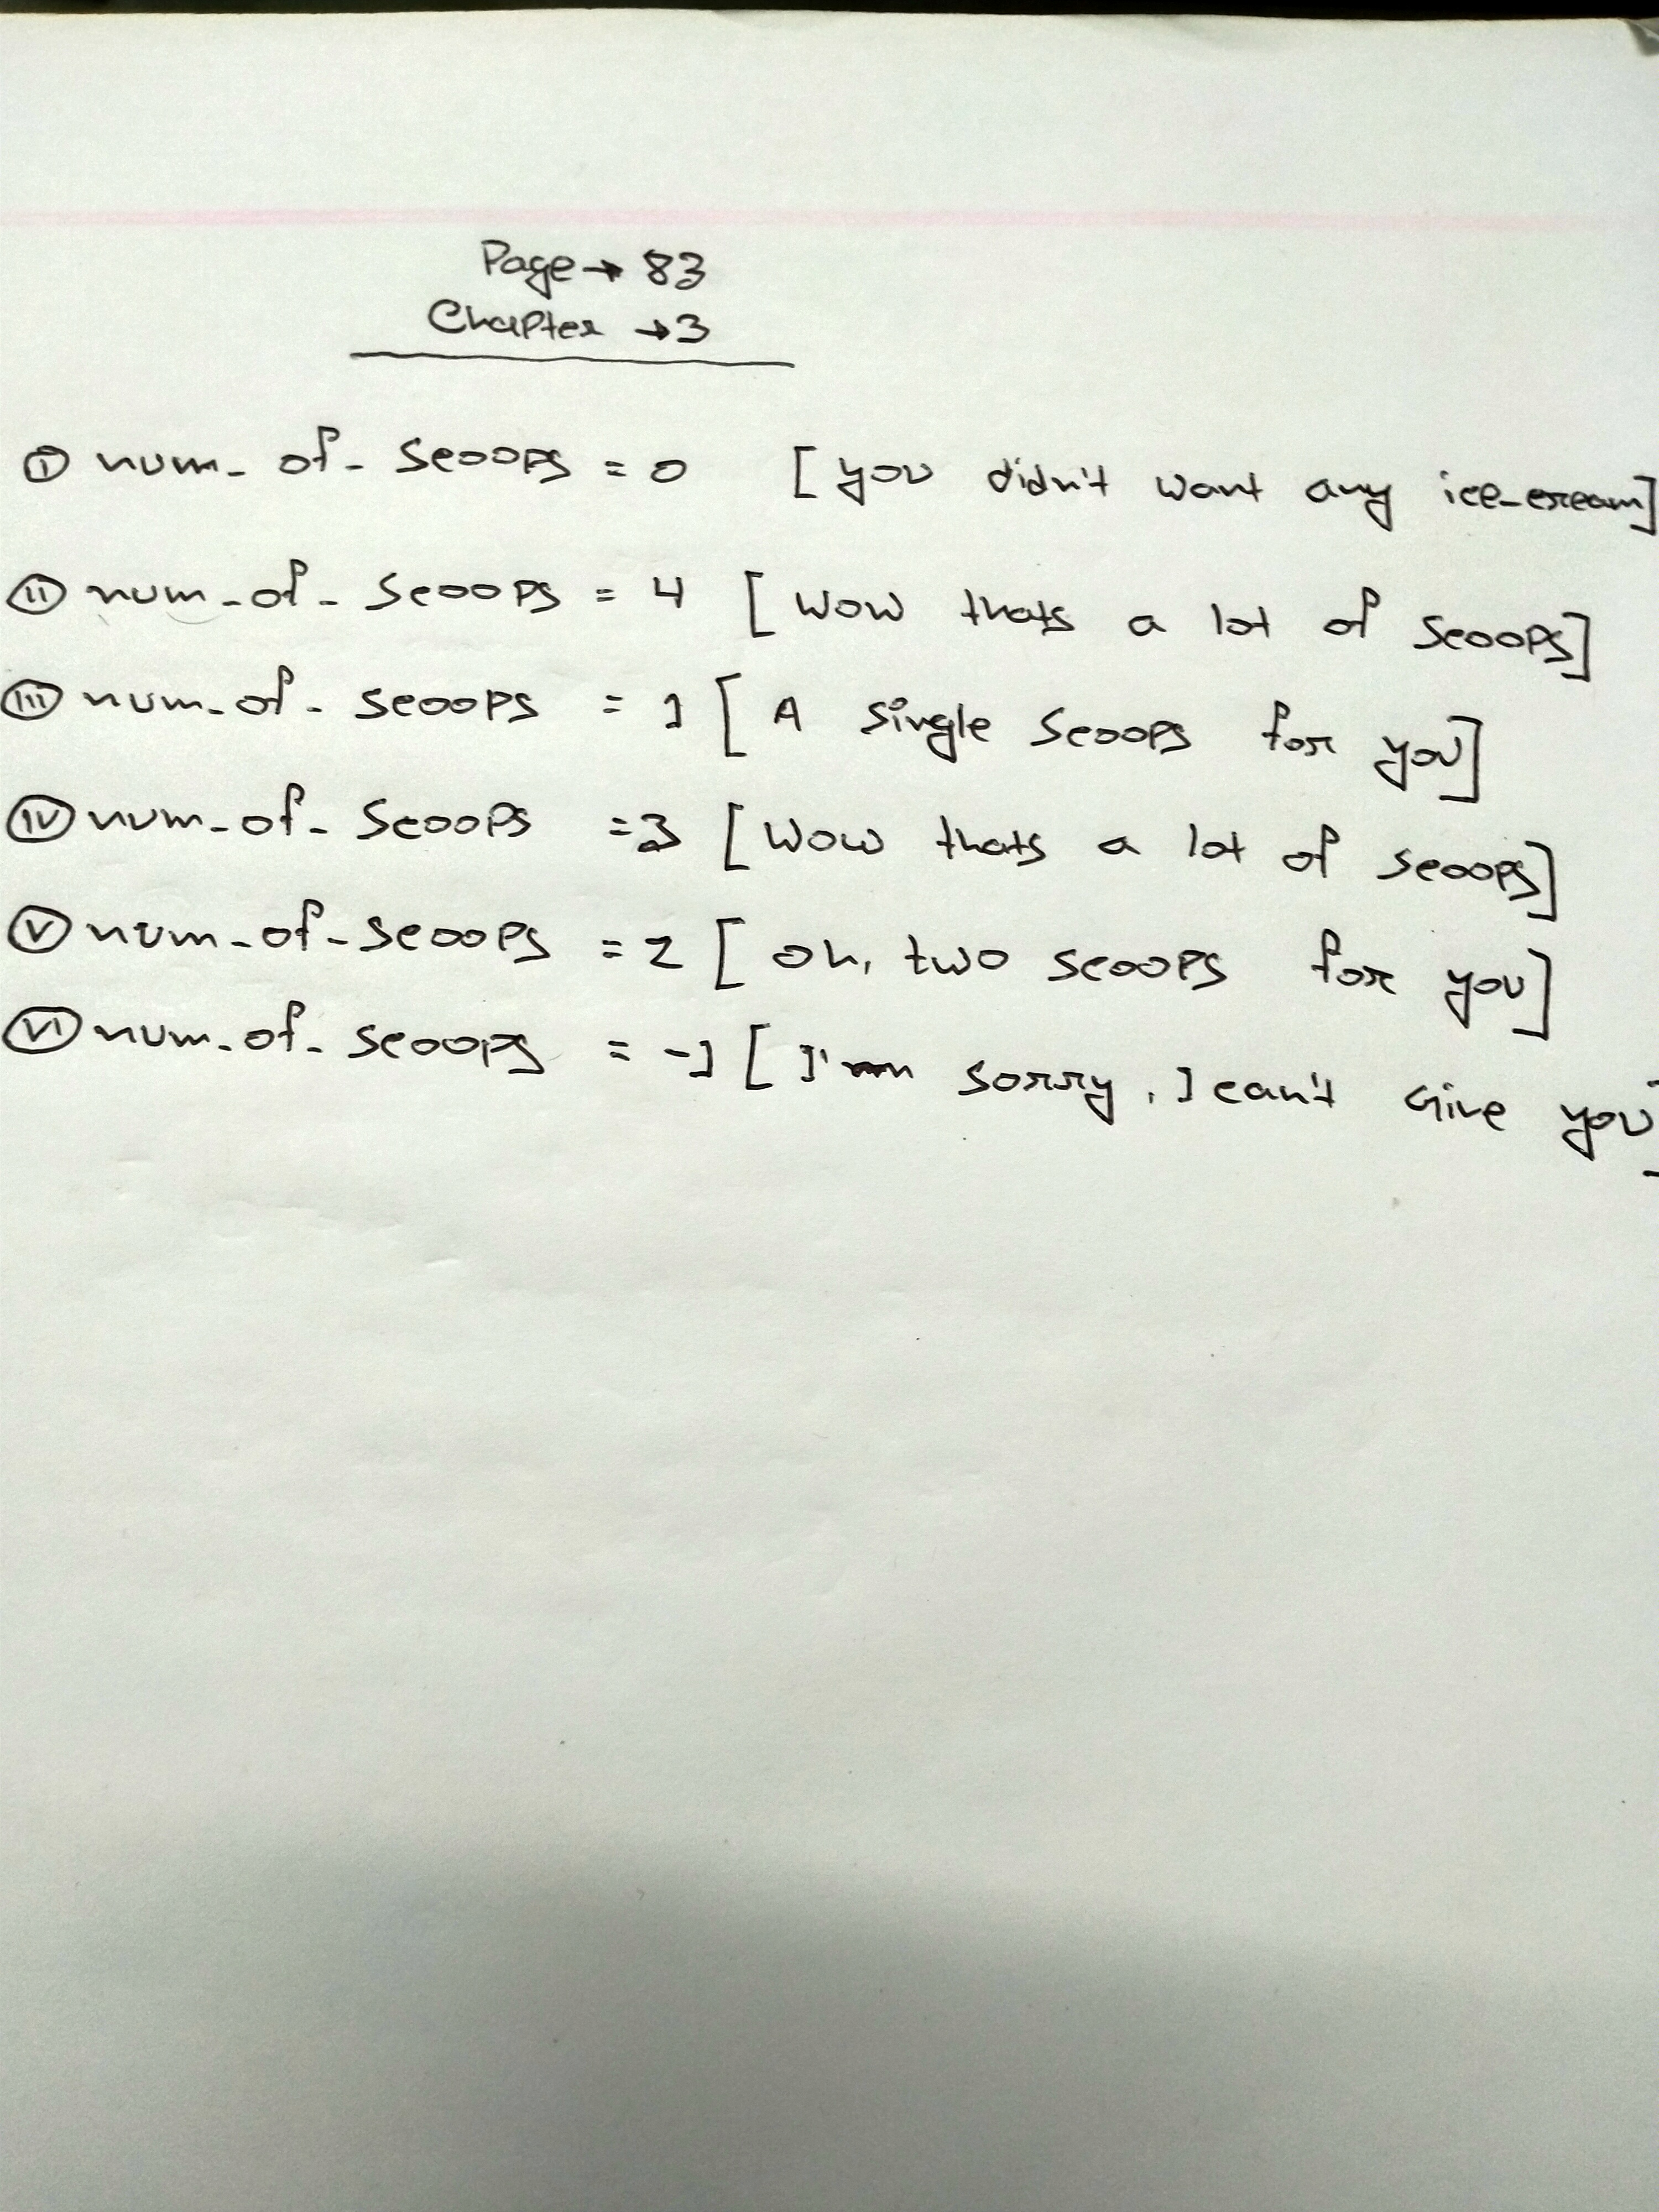 Page → 83
Chapter → 3
(i) num_of_scoops = 0 [you didn't want any ice-cream]
(ii) num_of_scoops = 4 [wow thats a lot of scoops]
(iii) num_of_scoops = 1 [A single scoops for you]
(iv) num_of_scoops = 3 [wow thats a lot of scoops]
(v) num_of_scoops = 2 [oh, two scoops for you]
(vi) num_of_scoops = -1 [I'm sorry, I can't give you]